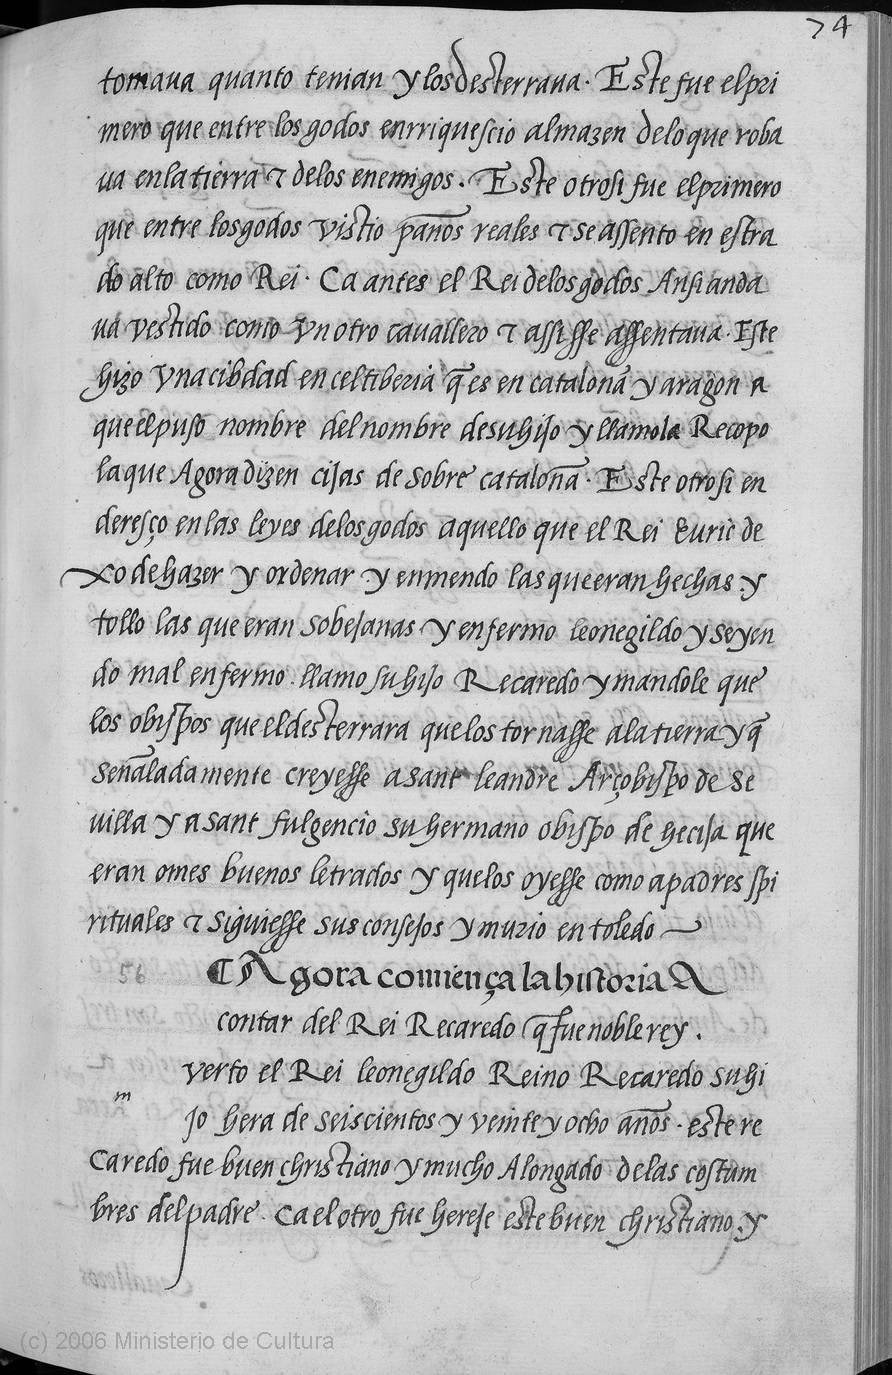 74
tomava quanto tenian y los desterrava. Este fue el pri
mero que entre los godos enrriquescio almazen delo que roba
va en la tierra & delos enemigos. Este otrosi fue el primero
que entre los godos vistio pan̄os reales & se assento en estra
do alto como Rei. Ca antes el Rei delos godos Ansi anda
va vestido como vn otro cavallero & assi sse assentava. Este
hizo vna cibdad en celtiberia q̄ es en catalon̄a y aragon a
que el puso nombre del nombre de su hijo y llamola Recopo
la que Agora dizen cijas de sobre catalon̄a. Este otrosi en
deresço en las leyes delos godos aquello que el Rei Euric de
xo de hazer y ordenar y enmendo las que eran hechas y
tollo las que eran sobejanas y enfermo leonegildo y seyen
do mal enfermo. llamo su hijo Recaredo y mandole que
los obispos que el desterrara que los tornasse ala tierra y q̄
sen̄aladamente creyesse a sant leandre Arçobispo de Se
villa y a sant fulgencio su hermano obispo de hecija que
eran omes buenos letrados y quelos oyesse como a padres spi
rituales & siguiesse sus consejos y murio en toledo
56 Agora comiença la historia A
contar del Rei Recaredo q̄ fue noble rey.
m verto el Rei leonegildo Reino Recaredo su hi
jo hera de seiscientos y veinte y ocho an̄os. este re
Caredo fue buen christiano y mucho Alongado delas costum
bres del padre. Ca el otro fue hereje este buen christiano. y
(c) 2006 Ministerio de Cultura